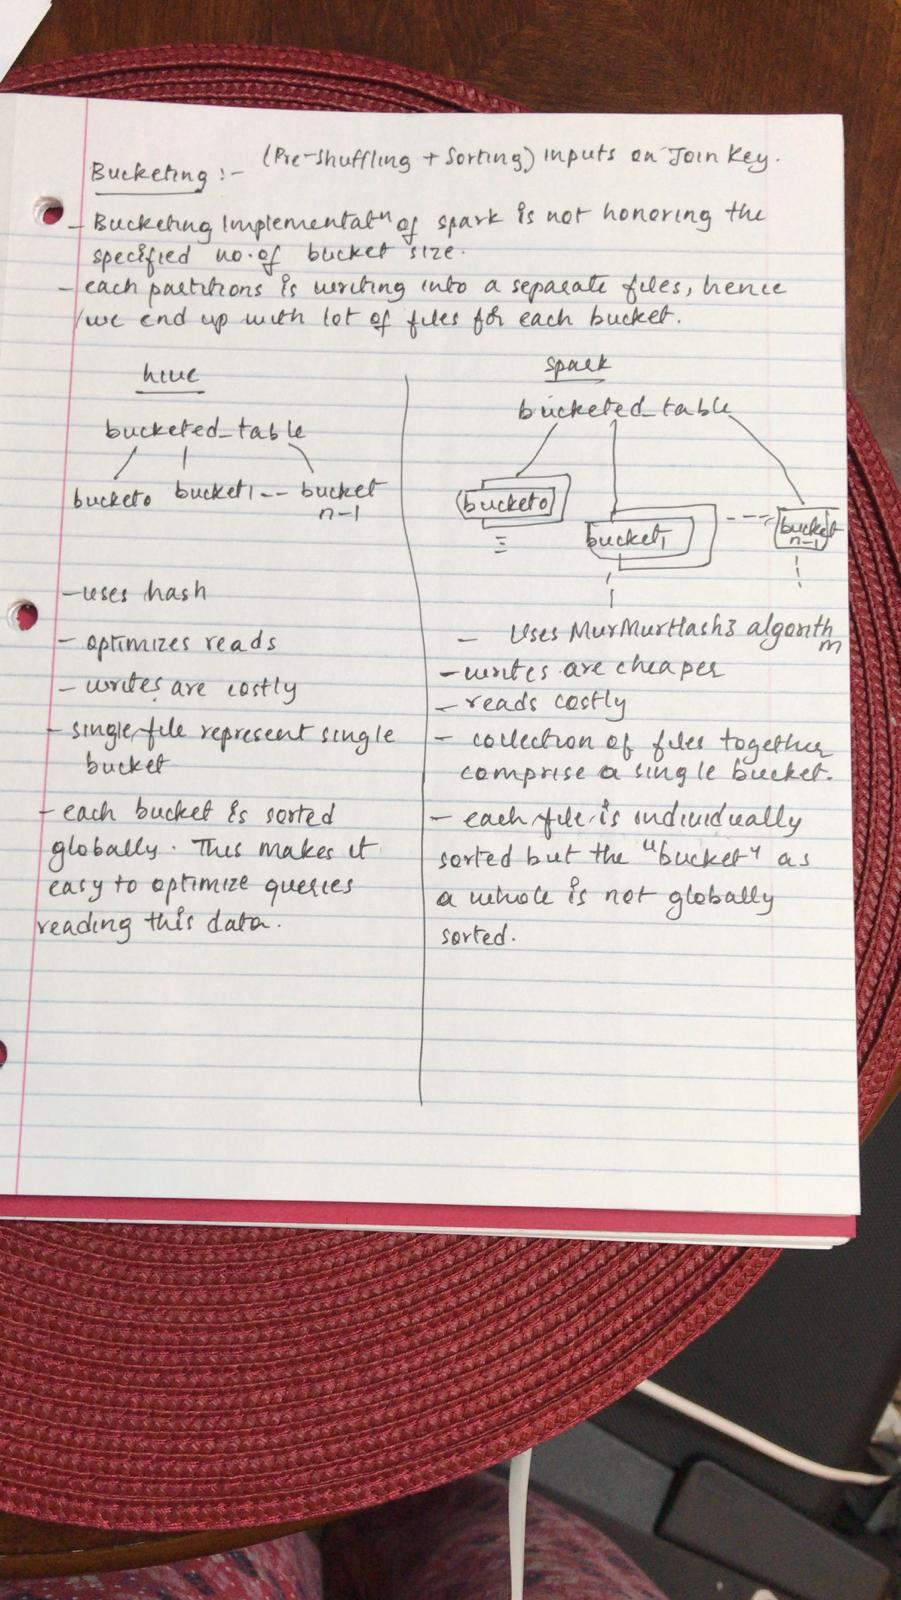 Bucketing :- (Pre-shuffling + Sorting) inputs on Join Key.
- Bucketing Implementatn of spark is not honoring the
specified no. of bucket size.
- each partitions is writing into a separate files, hence
we end up with lot of files for each bucket.
hive
bucketed_table
bucket0 bucket1 -- bucket
n-1
- uses hash
- optimizes reads
- writes are costly
- single file represent single
bucket
- each bucket is sorted
globally. This makes it
easy to optimize queries
reading this data.
spark
bucketed_table
bucket0
bucket1
---- bucket
n-1
- Uses MurMurHash3 algorith
m
- writes are cheaper
- reads costly
- collection of files together
comprise a single bucket.
- each file is individually
sorted but the "bucket" as
a whole is not globally
sorted.